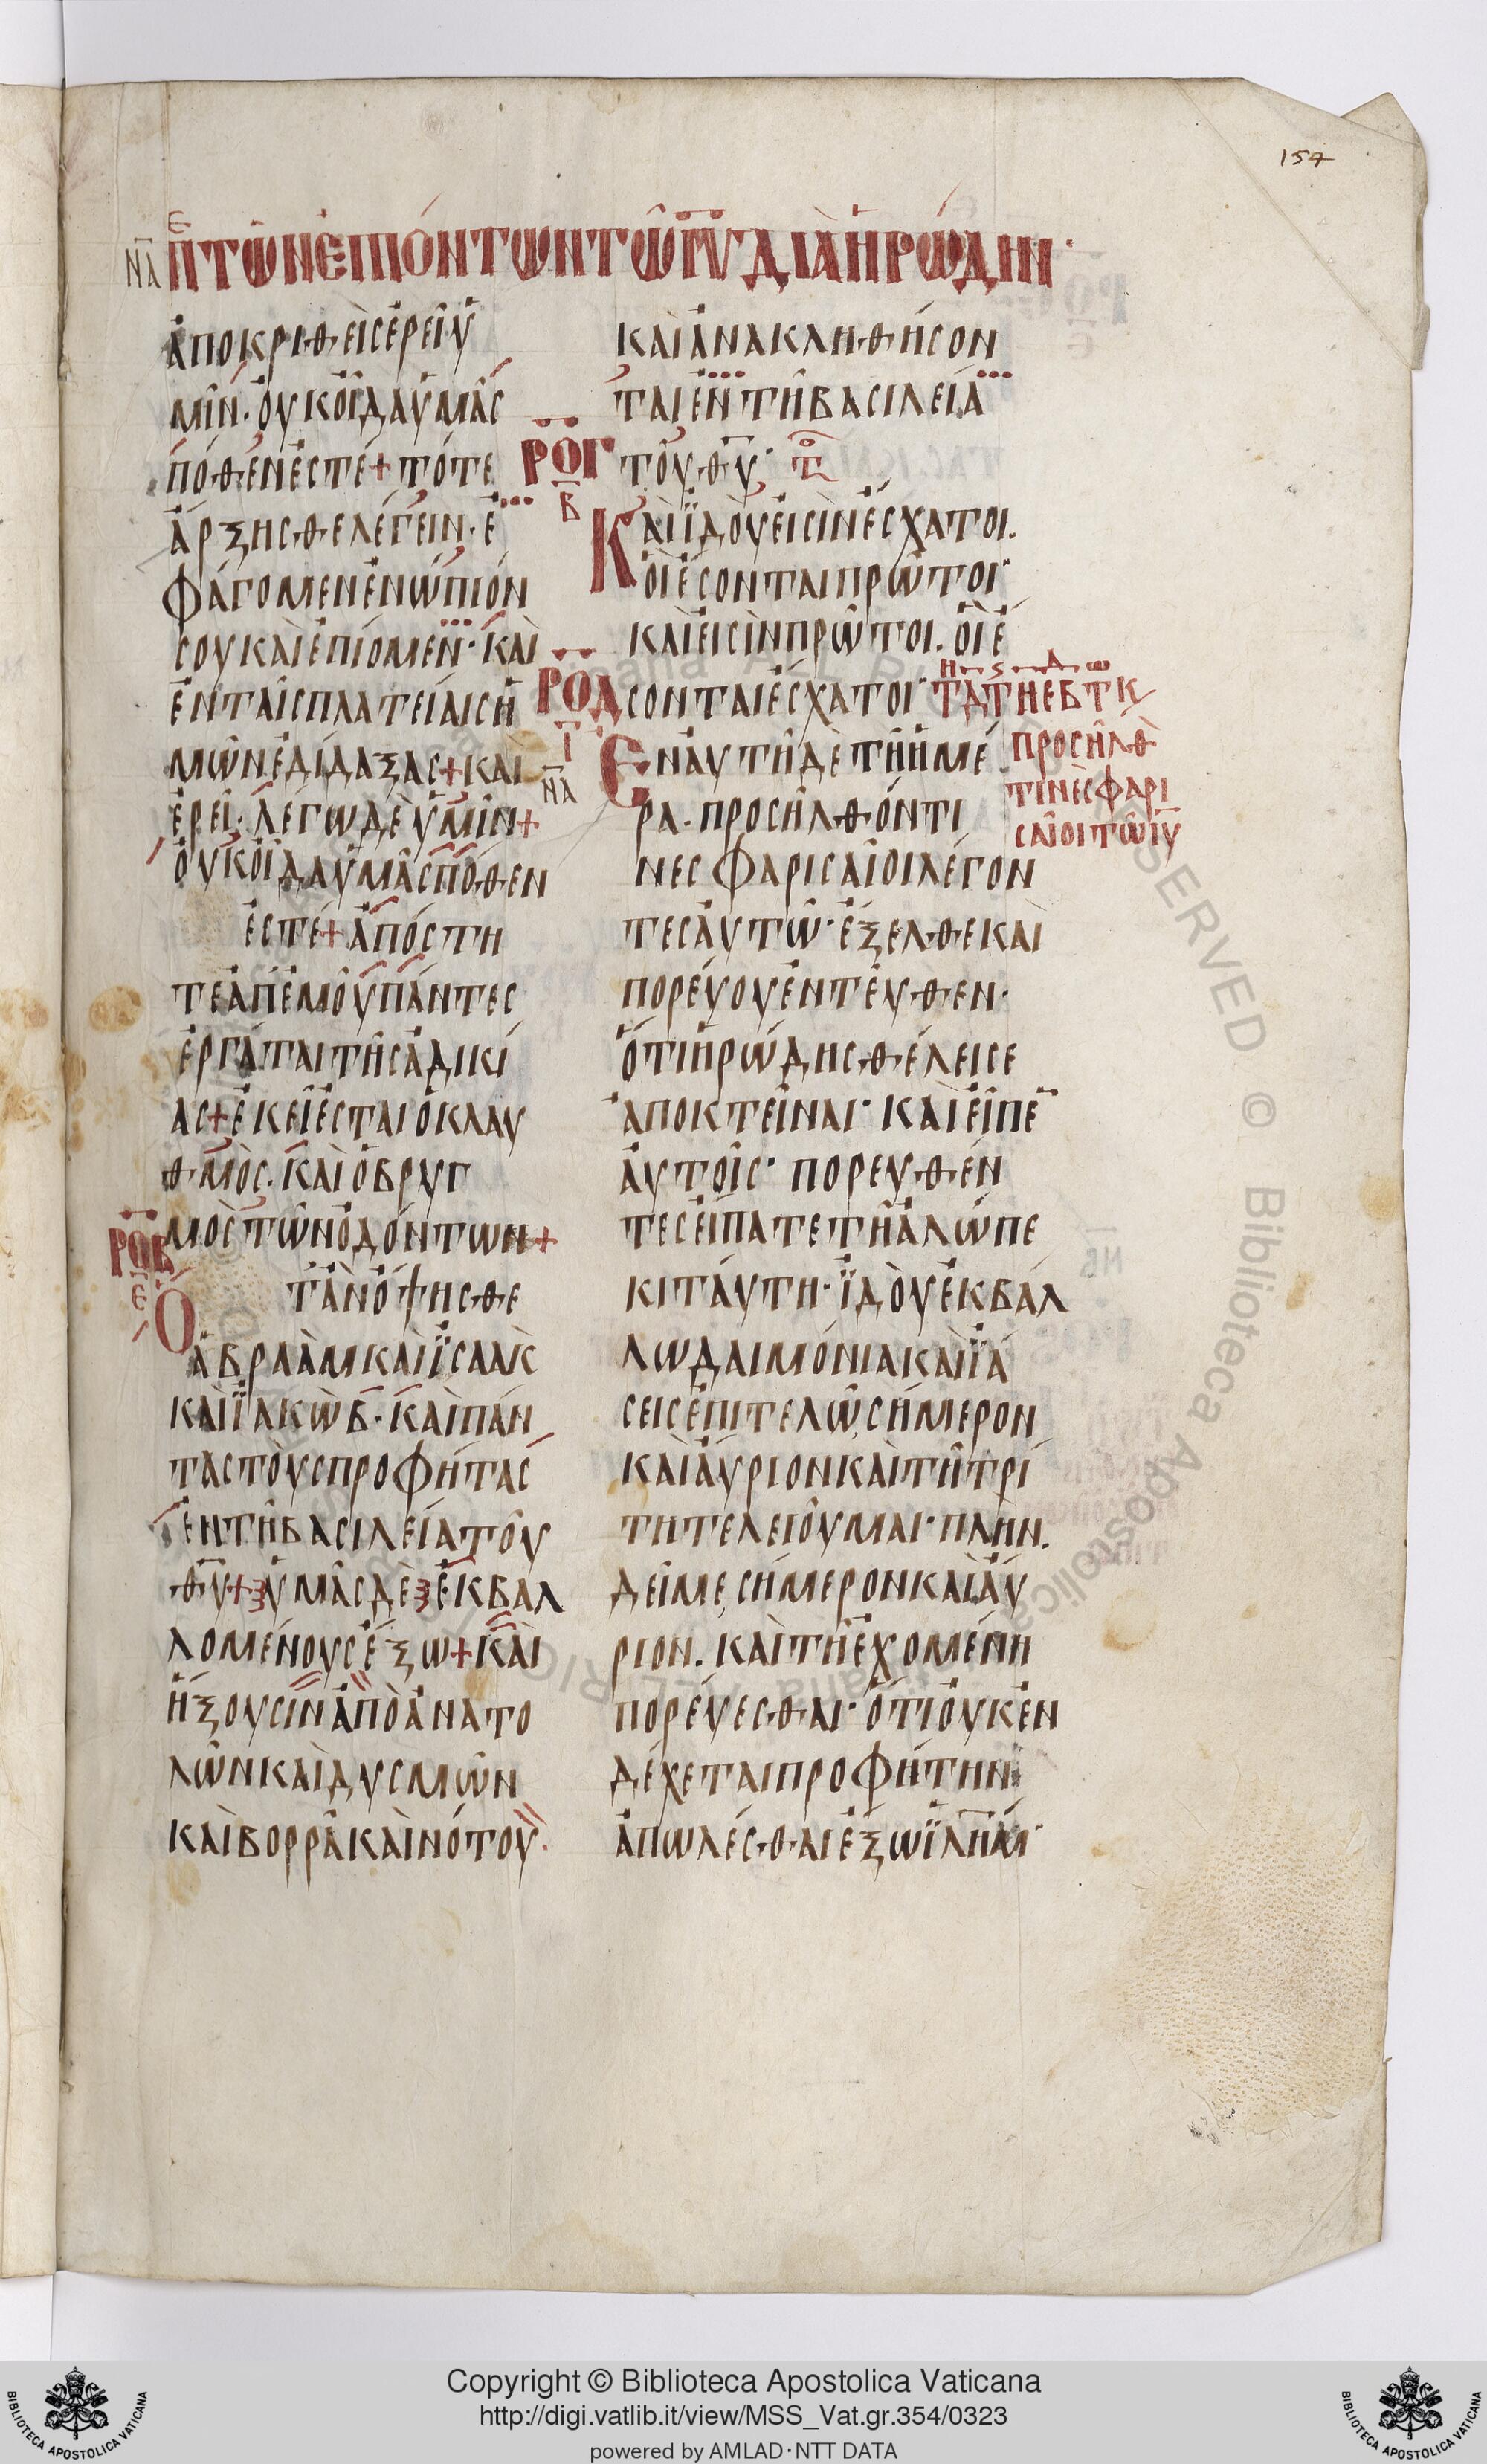 154
ΝΑ ΠΕ ΤῶΝ ΕἸΠΌΝΤΩΝ Τῶ ΙΥ ΔΙᾺ ἩΡΏΔΗΝ·
ἀποκριθεὶς ἐρεῖ ὑ
μῖν· οὐκ οἶδα ὑμᾶς
πόθεν ἐστέ + τότε
ἄρξησθε λέγειν· ἐ
φάγομεν ἐνώπιόν
σου καὶ ἐπίομεν· καὶ
ἐν ταῖς πλατείαις ἡ
μῶν ἐδίδαξας + καὶ
ἐρεῖ· λέγω δὲ ὑμῖν +
οὐκ οἶδα ὑμᾶς πόθεν
ἐστέ + ἀπόστη
τε ἀπ ἐμοῦ πάντες
ἐργάται τῆς ἀδικί
ας + ἐκεῖ ἔσται ὁ κλαυ
θμὸς· καὶ ὁ βρυγ
μὸς τῶν ὀδόντων +
ΡΟΒ
Ε
Ὅταν ὄψησθε
ἀβραὰμ καὶ ἰσαὰκ
καὶ ϊακὼβ· καὶ πάν
τας τοὺς προφήτας
ἐν τῆ βασιλεία τοῦ
θυ + ὑμᾶς δὲ ἐκβαλ
λομένους ἔξω + καὶ
ἥξουσιν ἀπὸ ἀνατο
λῶν καὶ δυσμῶν
καὶ βορρᾶ καὶ νότου·
καὶ ἀνακληθήσον
ται ἐν τῆ βασιλεία
ΡΟΓ
Β
τοῦ θυ·
Καὶ ϊδοὺ εἰσὶν ἔσχατοι.
οἳ ἔσονται πρῶτοι·
καὶ εἰσὶν πρῶτοι. οἳ ἔ
ΡΟΔ
Ι
ΝΑ
σονται ἔσχατοι·
Ἐν αὐτῆ δὲ τῆ ἡμέ
ρα· προσῆλθόν τι
νες φαρισαῖοι λέγον
τες αὐτῶ· ἔξελθε καὶ
πορεύου ἐντεῦθεν·
ὅτι ἡρώδης θέλει σε
ἀποκτεῖναι· καὶ εἶπε
αὐτοῖς· πορευθέν
τες εἴπατε τῆ ἀλώπε
κι ταύτη· ϊδοὺ ἐκβάλ
λω δαιμόνια καὶ ϊά
σεις ἐπιτελῶ, σήμερον
καὶ αὔριον καὶ τῆ τρί
τη τελειοῦμαι· πλὴν.
δεῖ με, σήμερον καὶ αὔ
ριον. καὶ τῆ ἐχομένη
πορεύεσθαι· ὅτι οὐκ ἐν
δέχεται προφήτην
ἀπωλέσθαι ἔξω ϊλημ·
προσῆλθό
τινὲς φαρι
σαῖοι τῶ ιυ
Copyright © Biblioteca Apostolica Vaticana
http://digi.vatlib.it/view/MSS_Vat.gr.354/0323
powered by AMLAD·NTT DATA
BIBLIOTECA APOSTOLICA VATICANA
BIBLIOTECA APOSTOLICA VATICANA